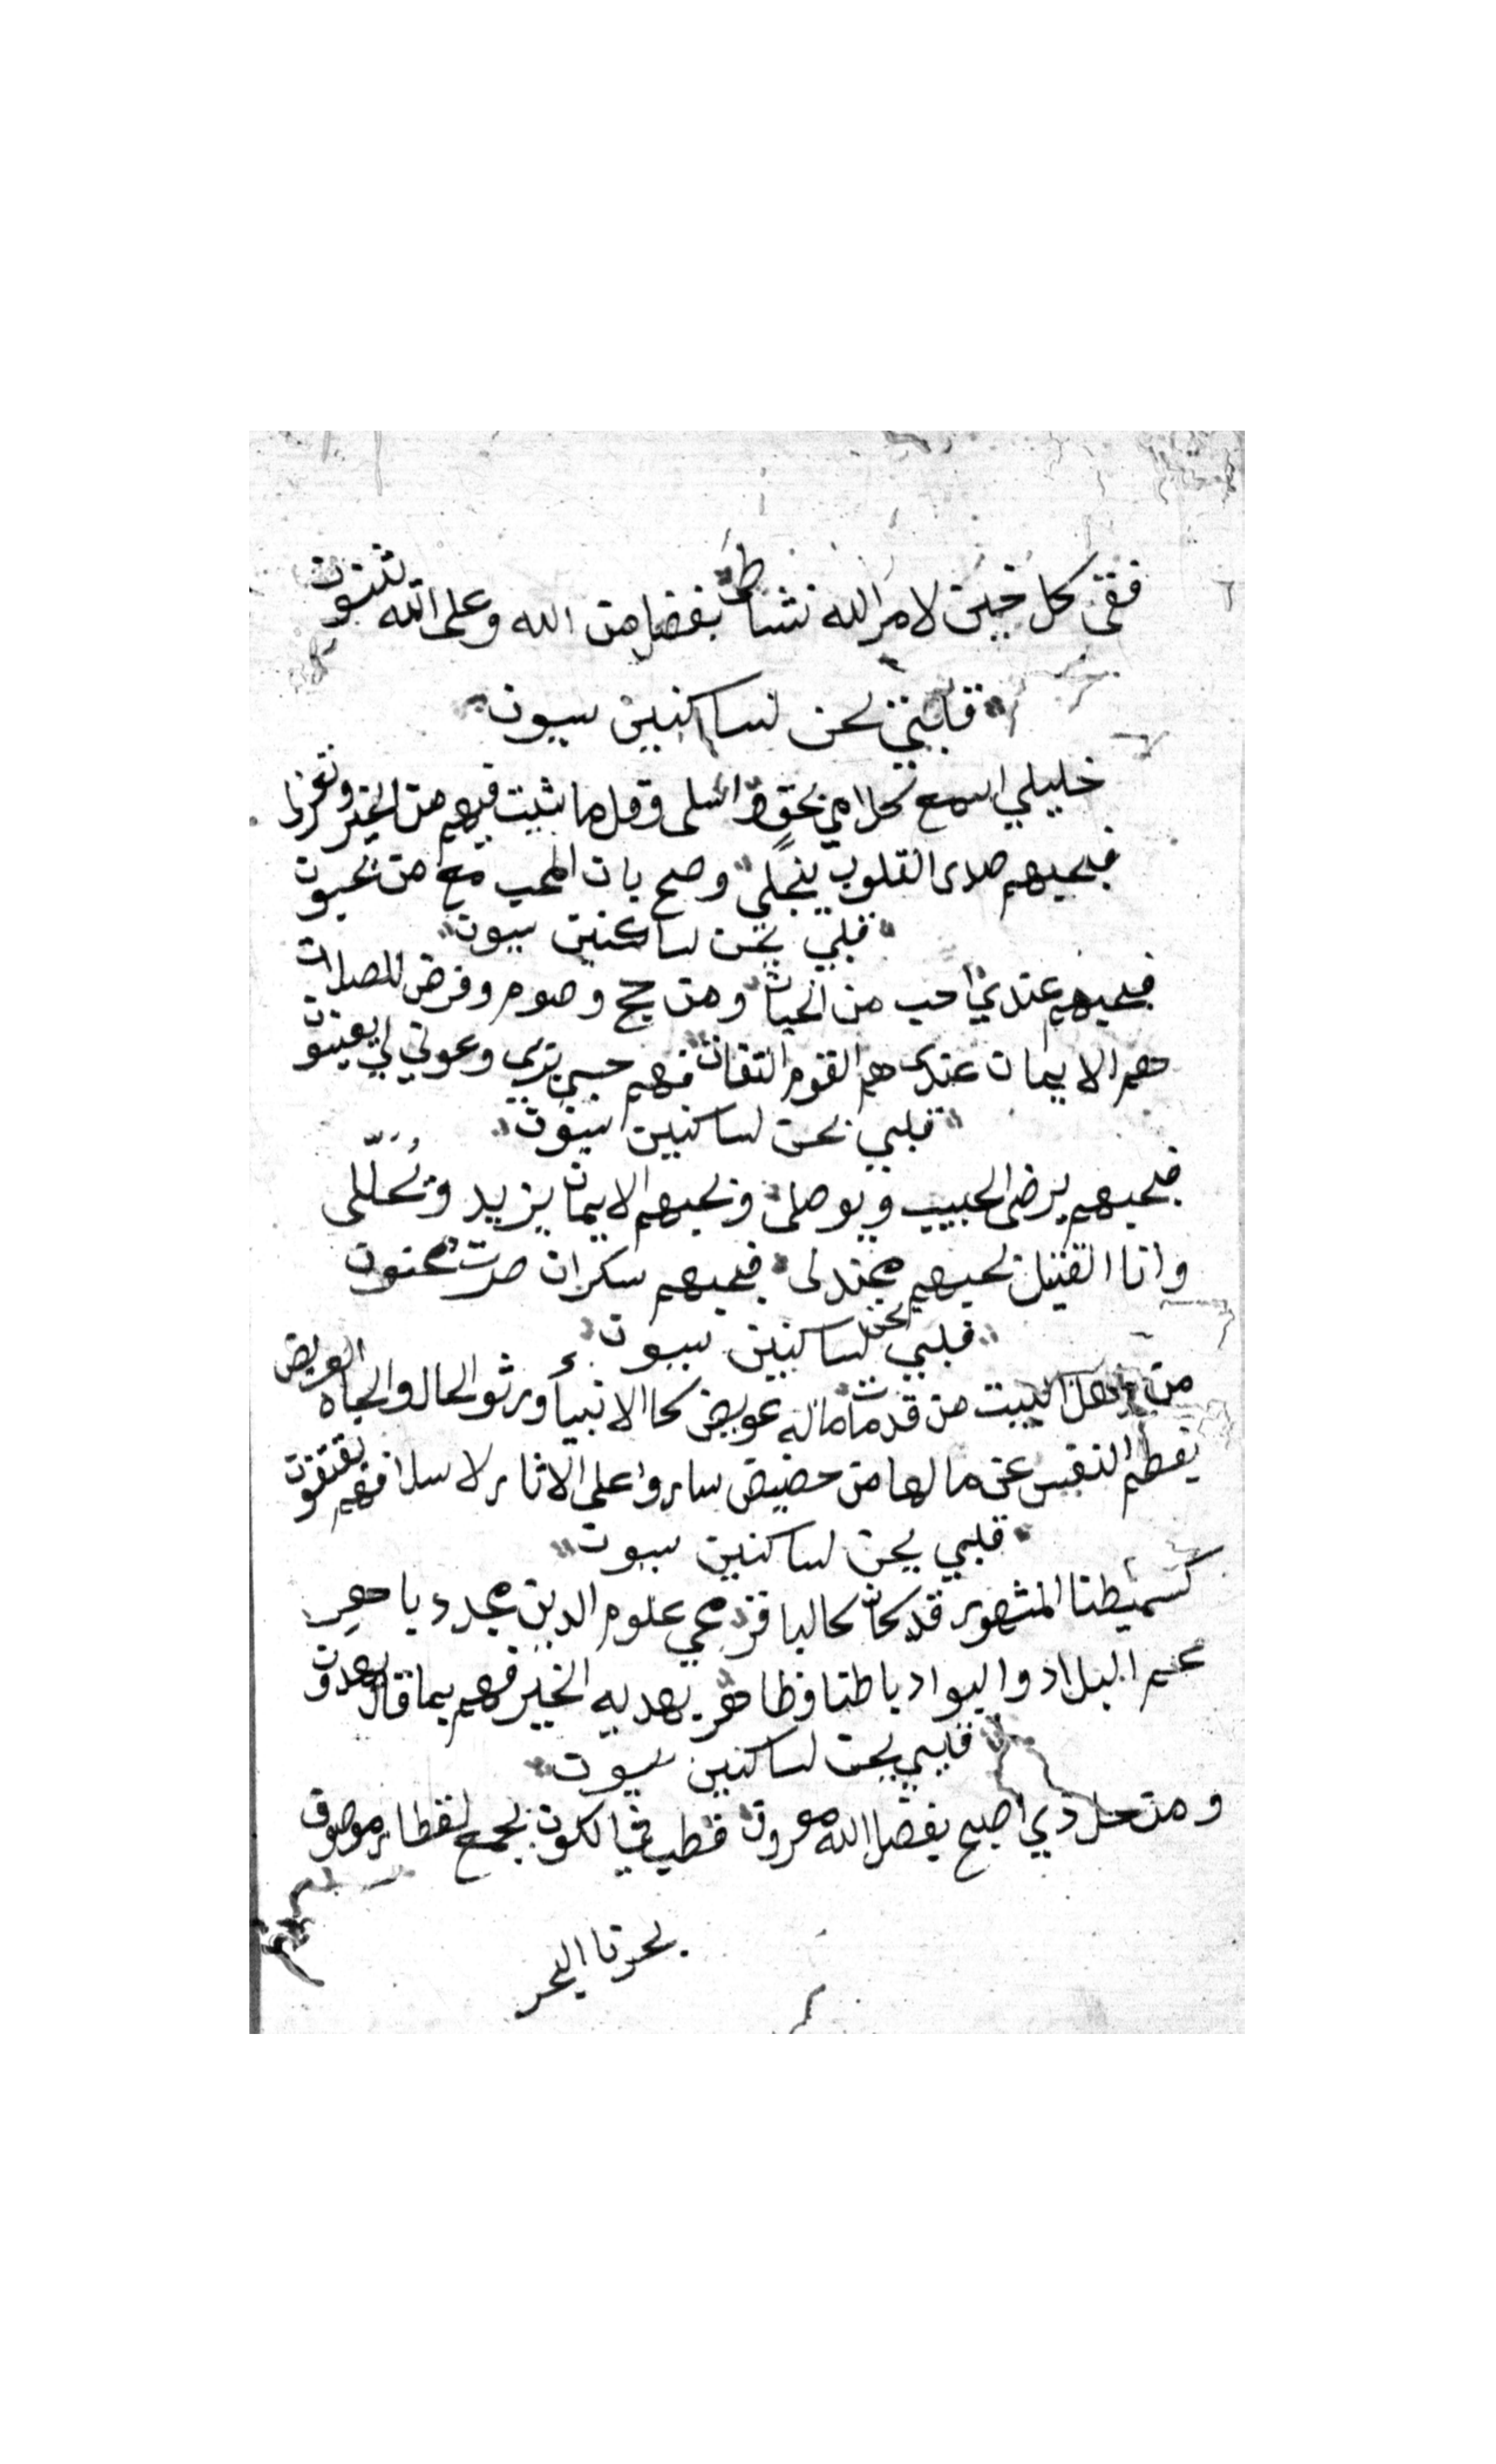 ففى كل حين لامر الله نشاط بفضل من الله وعلى الله يثنون
قلبي يحن لساكنين سيون
خليلي اسمع كلامي بحق واسلى وقل ما شيت فيهم من الخير وتغزلا
فبحبهم صلاى القلوب ينجلي وصح بان المحب مع من يحبون
قلبي يحن لساكنين سيون
فبحبهم عندي احب من الحيات ومن حج وصوم وفرض للصلات
هم الايمان عندى هم القوم الثقات فهم حسبي وعوني لي يغيثون
قلبي يحن لساكنين سيون
فبحبهم يرضى الحبيب ويوصلى وبحبهم الايمان يزيد
وانا القتيل بحبهم مجندلى فبحبهم سكران صرت مجنون
قلبي يحن لساكنين سيون
من اهل البيت من قد مات ماله عويض كا الانبيأ ورثو الحال والجاه العريض
يفطم النفس عن مالها من حضيض ساروا على الاثار لاسلافهم يقتفون
قلبي يحن لساكنين سيون
كسميطنا المشهور قد كان كالبافر محي علوم الدين مجدد يا
عم البلاد والبواد باطنا وظاهر يهديه الخير فهم بما قال يهدون
قلبي يحن لساكنين سيون
ومن حل ذي اصبح بفضل الله معروف قطب في الكون بجمع لقطار موصوف
بحرنا البحر